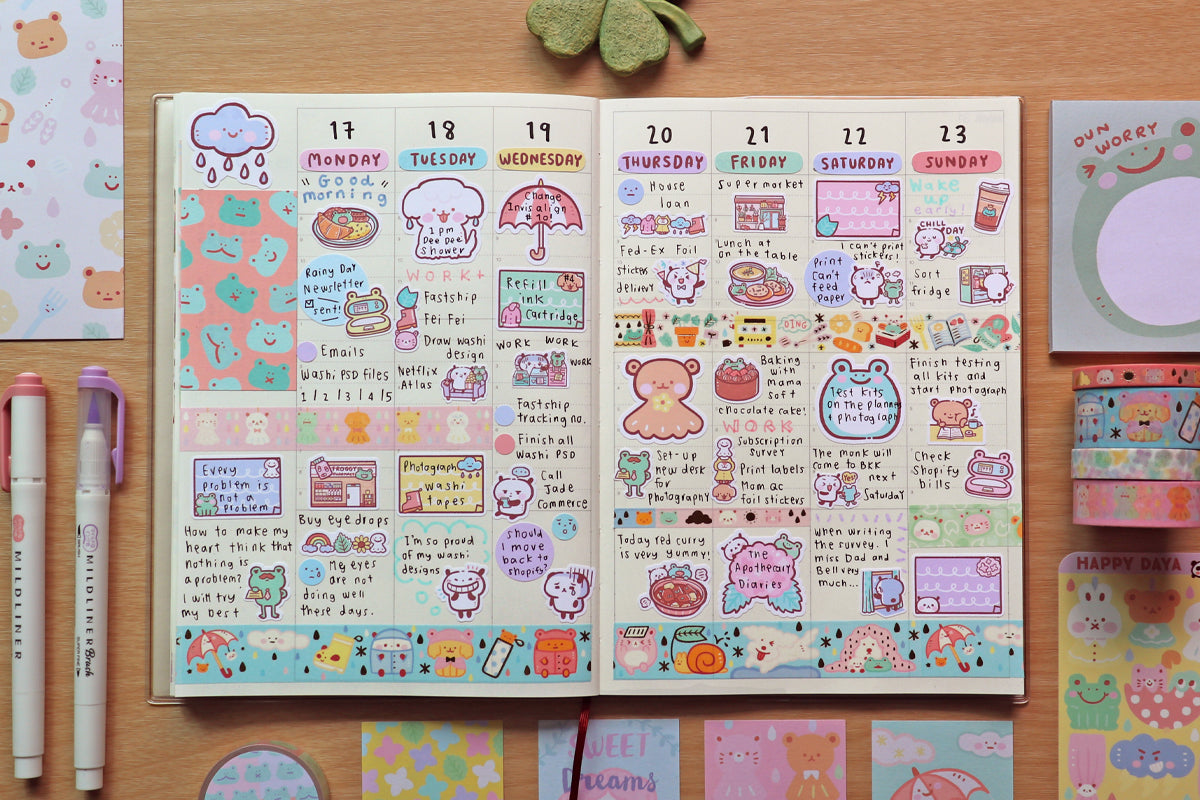 17
MONDAY
"Good
morning"
Rainy Day
Newsletter
sent!
Emails
Washi PSD files
1 / 2 / 3 / 4 / 5
Every
problem is
not a
problem
How to make my
heart think that
nothing is
a problem?
I will try
my best
FROGGY
Buy eye drops
My eyes
are not
doing well
these days.
18
TUESDAY
1 pm
Dee Dee
Shower
WORK +
Fastship
Fei Fei
Draw washi
design
Netflix
Atlas
Photograph
washi
tapes
I'm so proud
of my washi
designs
19
WEDNESDAY
Change
Invisalign
#10!
#4
Refill
ink
Cartridge
WORK WORK
WORK
Fastship
tracting no.
Finish all
Washi PSD
Call
Jade
Commerce
should
I move
back to
shopify?
20
THURSDAY
House
loan
Fed-Ex Foil
stickers
delivery
Set-up
new desk
for
photography
Today red curry
is very yummy!
21
FRIDAY
Supermarket
Lunch at
on the table
Baking
with
Mama
Soft
chocolate cake!
WORK
Subscription
survey
Print labels
Mom ac
foil stickers
The
Apothecary
Diaries
22
SATURDAY
I can't print
stickers!
Print
Can't
feed
paper
DING
Test kits
on the planner
+ photograph
The monk will
come to BKK
next
Saturday
Yay
When writing
the survey. I
miss Dad and
Bell very
much...
23
SUNDAY
Wake
up
early!!
CHILL
DAY
Sort
fridge
Finish testing
all kits and
start photograph
Check
Shopify
bills
DUN
WORRY
MILDLINER
MILDLINER Brush
HAPPY DAYA
SWEET
Dreams